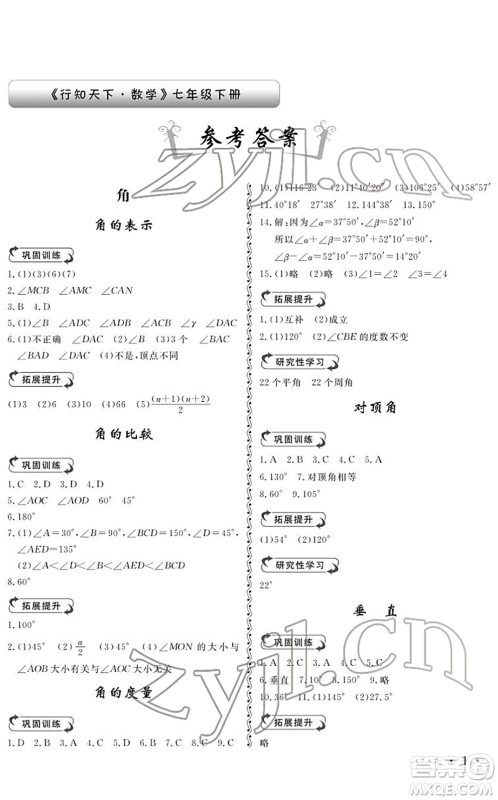 《行知天下·数学》七年级下册
参考答案
角
角的表示
巩固训练
1.(1)(3)(6)(7)
2.∠MAC ∠AMC ∠CAN
3.B 4.D
5.(1)∠B (2)∠DAC ∠DAC ∠γ ∠DAC
6.(1)不正确 ∠DAC (2)3 (3)3个 ∠BAC
∠BAD ∠DAC (4)不是,顶点不同
拓展提升
(1)3 (2)6 (3)10 (4)66 (5)(n+1)(n+2)/2
角的比较
巩固训练
1.C 2.D 3.D 4.C
5.∠AOC ∠AOD 60° 90°
6.180°
7.(1)∠A=30°,∠B=90°,∠BDC=150°,
∠AED=135°
(2)∠A<∠D<∠B<∠E<∠C
8.60°
拓展提升
1.100°
2.(1)45° (2)α/2 (3)45° (4)∠MON的大小与
∠AOB大小有关与∠AOC大小无关
角的度量
巩固训练
1.D 2.D 3.D 4.D 5.D 6.C 7.C 8.C 9.C
10.(1)116°23′ (2)11°40′20″ (3)106°25′ (4)58°57′
11.40°18′ 12.27°38′ 144°38′ 13.150°
14.解:因为∠α=37°50′,∠β=37°50′+12°
所以∠α+∠β=37°50′+37°50′+12°=
∠β-∠α=37°50′+12°-37°50′=12°
15.(1)略 (2)略 (3)∠1=∠2 (4)略
拓展提升
1.(1)互补 (2)成立
2.(1)120° (2)∠CBE的度数不变
研究性学习
22个平角 22个周角
对顶角
巩固训练
1.A 2.D 3.C 4.A 5.C
6.130° 7.35° 对顶角相等
8.60° 9.150°
拓展提升
(1)54° (2)120°
研究性学习
22°
垂直
巩固训练
1.A 2.D 3.C 4.C 5.C
6.垂直 7.50° 8.30° 9.130°
10.36° 11.(1)145° (2)27.5°
拓展提升
略
研究性学习
略
·1·
zyjl.cn
zyjl.cn